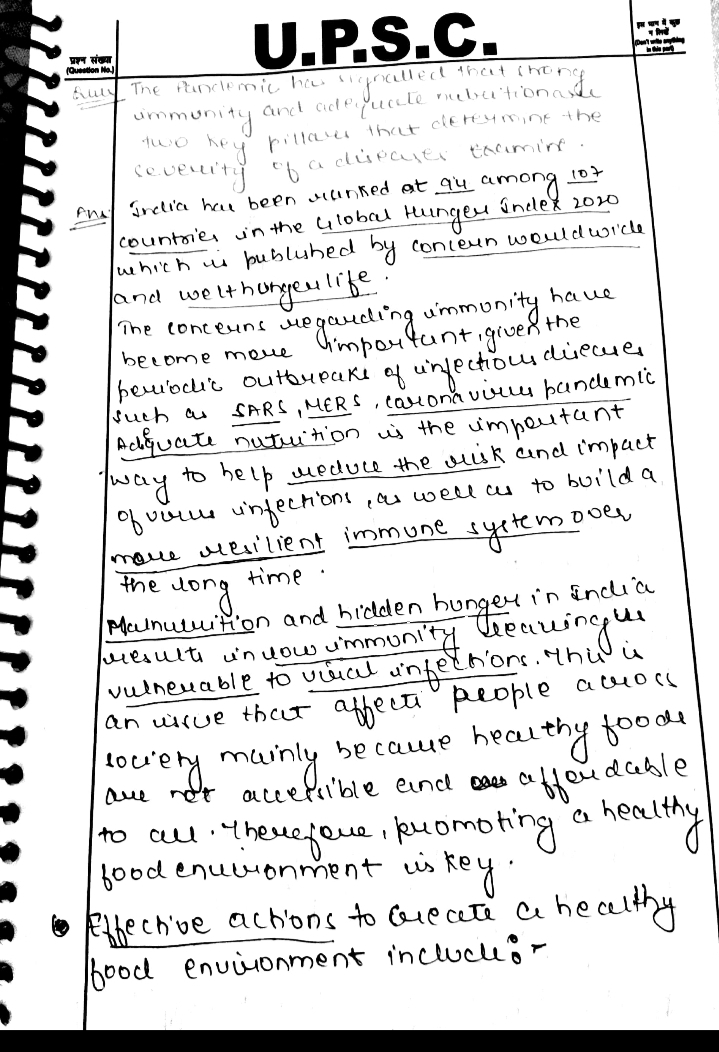 U.P.S.C.
प्रश्न संख्या
(Question No.)
इस भाग में कुछ
न लिखें
(Don't write anything
in this part)
The Pandemic has signalled that strong
immunity and adequate nutrition are
two key pillars that determine the
severity of a diseases Examine.
Ans: India has been ranked at 94 among 107
countries in the Global Hunger Index 2020
which is published by concern worldwide
and welthungerlife.
The concerns regarding immunity have
become more important, given the
periodic outbreaks of infectious diseases
such as SARS, MERS, coronavirus pandemic
Adequate nutrition is the important
way to help reduce the risk and impact
of virus infections, as well as to build a
more resilient immune system over
the long time.
Malnutrition and hidden hunger in India
results in low immunity leaving us
vulnerable to viral infections. This is
an issue that affects people across
society mainly because healthy foods
are not accessible and affordable
to all. Therefore, promoting a healthy
food environment is key.
Effective actions to create a healthy
food environment include:-